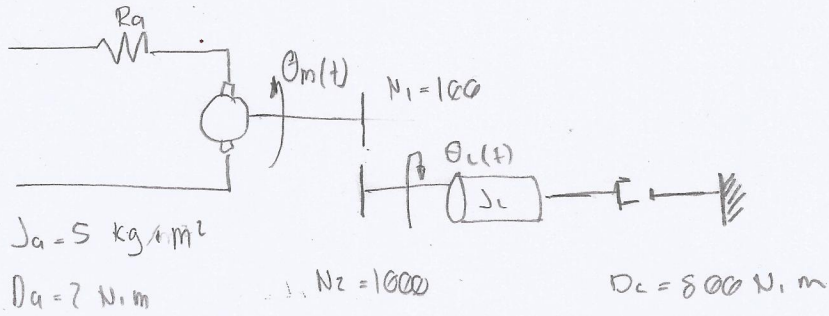 Ra
θm(t)
N1 = 100
θL(t)
JL
Ja = 5 kg·m²
Da = 2 N·m
N2 = 1000
DL = 800 N·m